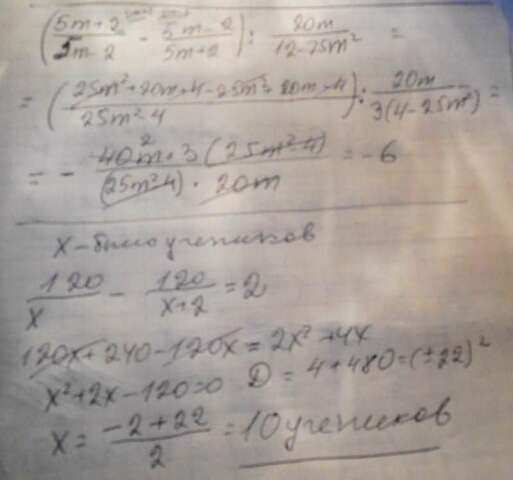 (5m+2/5m-2 - 5m-2/5m+2) : 20m/12-75m² =
= (25m²+20m+4-25m²+20m-4/25m²-4) : 20m/3(4-25m²) =
= - 40m·3(25m²-4)/(25m²-4)·20m = -6
x - было учеников
120/x - 120/x+2 = 2
120x+240-120x = 2x²+4x
x²+2x-120=0 D = 4+480=(±22)²
x = -2+22/2 = 10 учеников